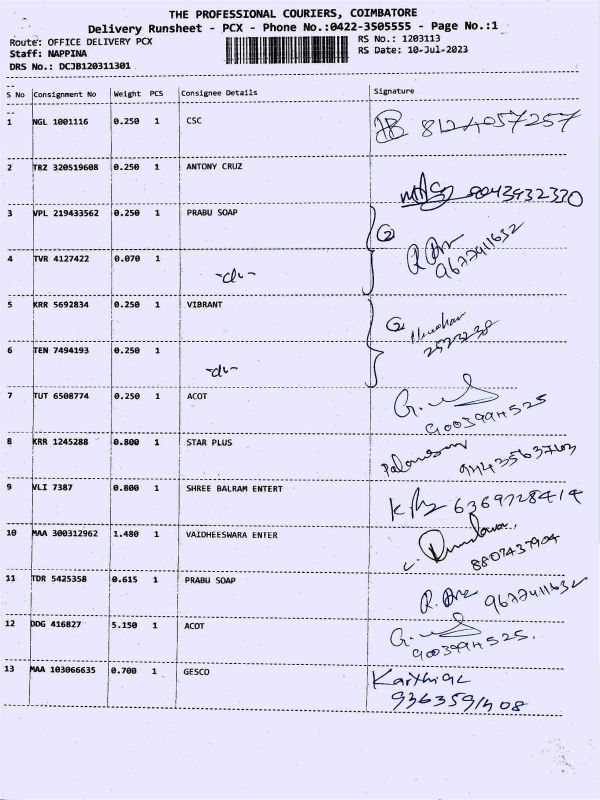 THE PROFESSIONAL COURIERS, COIMBATORE
Delivery Runsheet - PCX - Phone No.:0422-3505555 - Page No.:1
Route: OFFICE DELIVERY PCX
RS No.: 1203113
Staff: NAPPINA
RS Date: 10-Jul-2023
DRS No.: DCJB120311301
S No Consignment No Weight PCS Consignee Details Signature
1 NGL 1001116 0.250 1 CSC 8124057257
2 TRZ 320519608 0.250 1 ANTONY CRUZ
3 VPL 219433562 0.250 1 PRABU SOAP 2
4 TVR 4127422 0.070 1 -do- 9677911632
5 KRR 5692834 0.250 1 VIBRANT 2
6 TEN 7494193 0.250 1 -do-
7 TUT 6508774 0.250 1 ACOT
8 KRR 1245288 0.800 1 STAR PLUS
9 VLI 7387 0.800 1 SHREE BALRAM ENTERT 6369728414
10 MAA 300312962 1.480 1 VAIDHEESWARA ENTER 8807437904
11 TDR 5425358 0.615 1 PRABU SOAP
12 DDG 416827 5.150 1 ACOT
13 MAA 103066635 0.700 1 GESCO